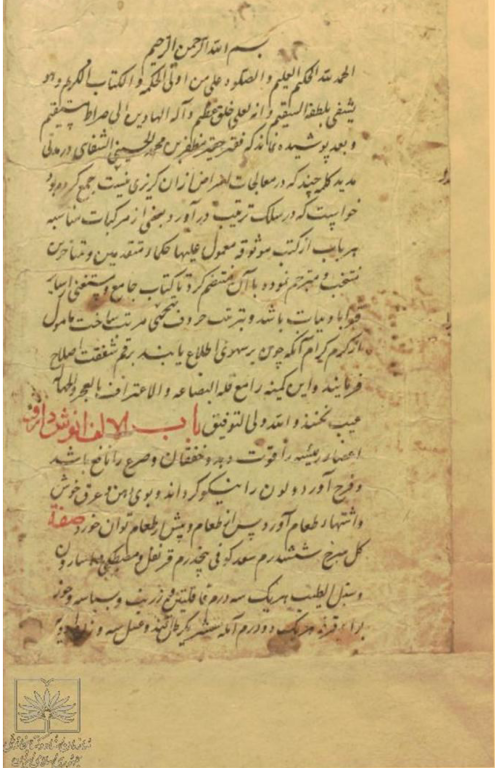 بسم الله الرحمن الرحیم
الحمد لله الحکیم العلیم و الصلوه علی من اوتی الحکمه و الکتاب الکریم و هو
یشفی بلطفه السقیم و انه لعلی خلق عظیم و آله الهادین الی صراط مستقیم
و بعد پوشیده نماند که فقیر حقیر مظفر بن محمد الحسینی الشفای در مدتی
مدید کلمه چند که در معالجات امراض از ان گزیری نیست جمع کرده بود
خواست که در سلک ترتیب در آورد و بعضی از مرکبات مناسبه
هر باب از کتب موثوقه معمول علیها حکماء متقدمین و متاخرین
منتخب و مترجم نموده با آن منضم کرد تا کتاب جامع و مستغنی از سایر
قرابادینات باشد و بترتیب حروف تهجی مرتب ساخت مامول
از کرم کرام آنکه چون بر سهوی اطلاع یابند برقم شفقت اصلاح
فرمایند و این کمینه را مع قلة البضاعه و الاعتراف بالعجز و الجهاله
عیب نکنند و الله ولی التوفیق باب الالف انوش دارو
اعضاء رئیسه را قوت دهد و خفقان و صرع را نافع باشد
و فرح آورد و لون را نیکو کرداند و بوی دهن و عرق خوش
و اشتهاء طعام آورد پس از طعام و پیش از طعام توان خورد صفة
کل سرخ شش درم سعد کوفی پنجدرم قرنفل و مصطکی و اسارون
و سنبل الطیب هر یک سه درم قاقلتین زرنب و بسباسه و جوز
بوا و قرفه هر یک دو درم آمله